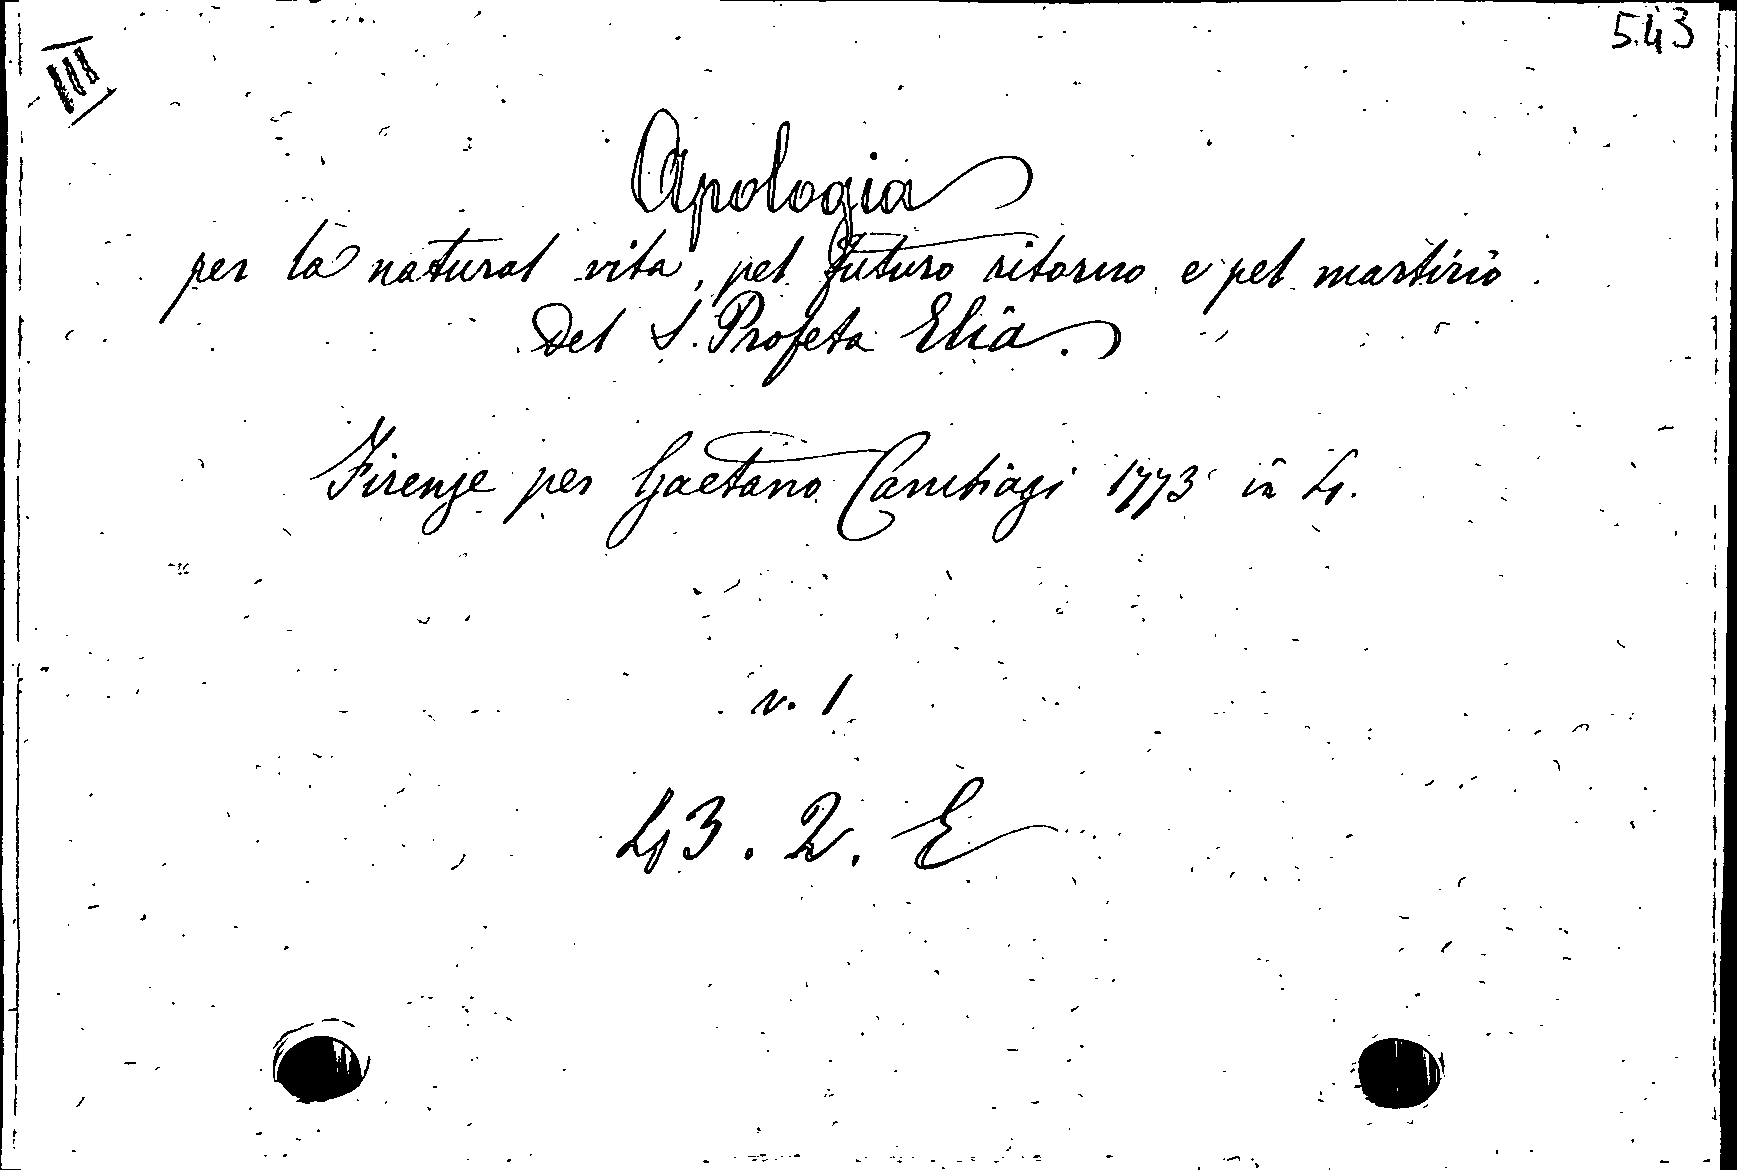 III
543
Apologia
per la natural vita, pel futuro ritorno e pel martirio
Del S. Profeta Elia.
Firenze per Gaetano Cambiagi 1773 in 4.
v. 1
43. 2. E